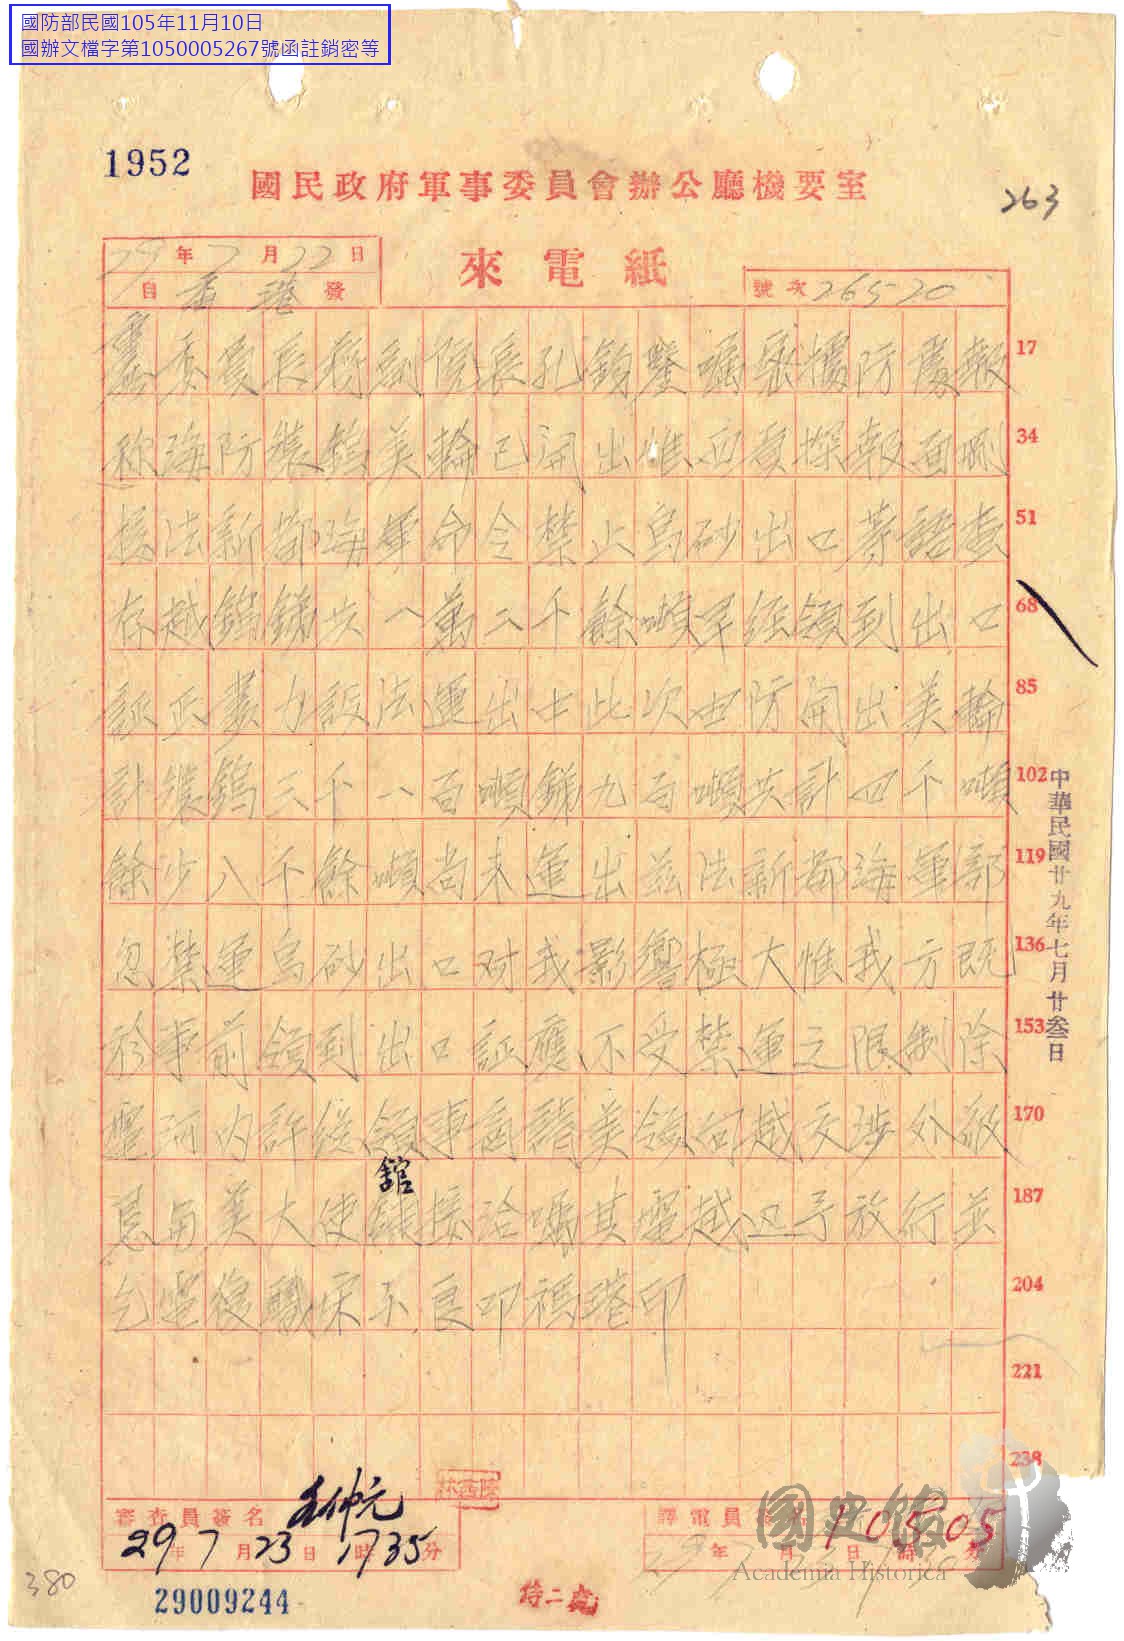 國防部民國105年11月10日
國辦文檔字第1050005267號函註銷密等
1952
國民政府軍事委員會辦公廳機要室
263
29年7月22日
來電紙
自香港發
號次26520
委員長蔣副院長孔鈞鑒囑張據防處報 17
称海防裝鎢美輪已開出惟應員探報西 34
接法新鄉海軍命令禁止烏砂出口等語查 51
存越鎢銻共一萬二千餘噸早經領到出口 68
証正盡力設法運出中此次由防開出美輪 85
計裝鎢三千一百噸銻九百噸共計四千噸 102
餘少八千餘噸尚未運出茲法新鄉海軍部 119
忽禁運烏砂出口对我影響極大惟我方既 136
於事前領到出口証應不受禁運之限制除 153
電河內許總領事商請美領向越交涉外祈 170
惠與美大使館接洽囑其電越迅予放行並 187
館
乞電復職宋子良叩禡港印 204
221
238
中華民國廿九年七月廿叁日
審查員簽名
29年7月23日17時35分
譯電員
105.05
年 月 日 時 分
國史館
Academia Historica
380
29009244
待二處